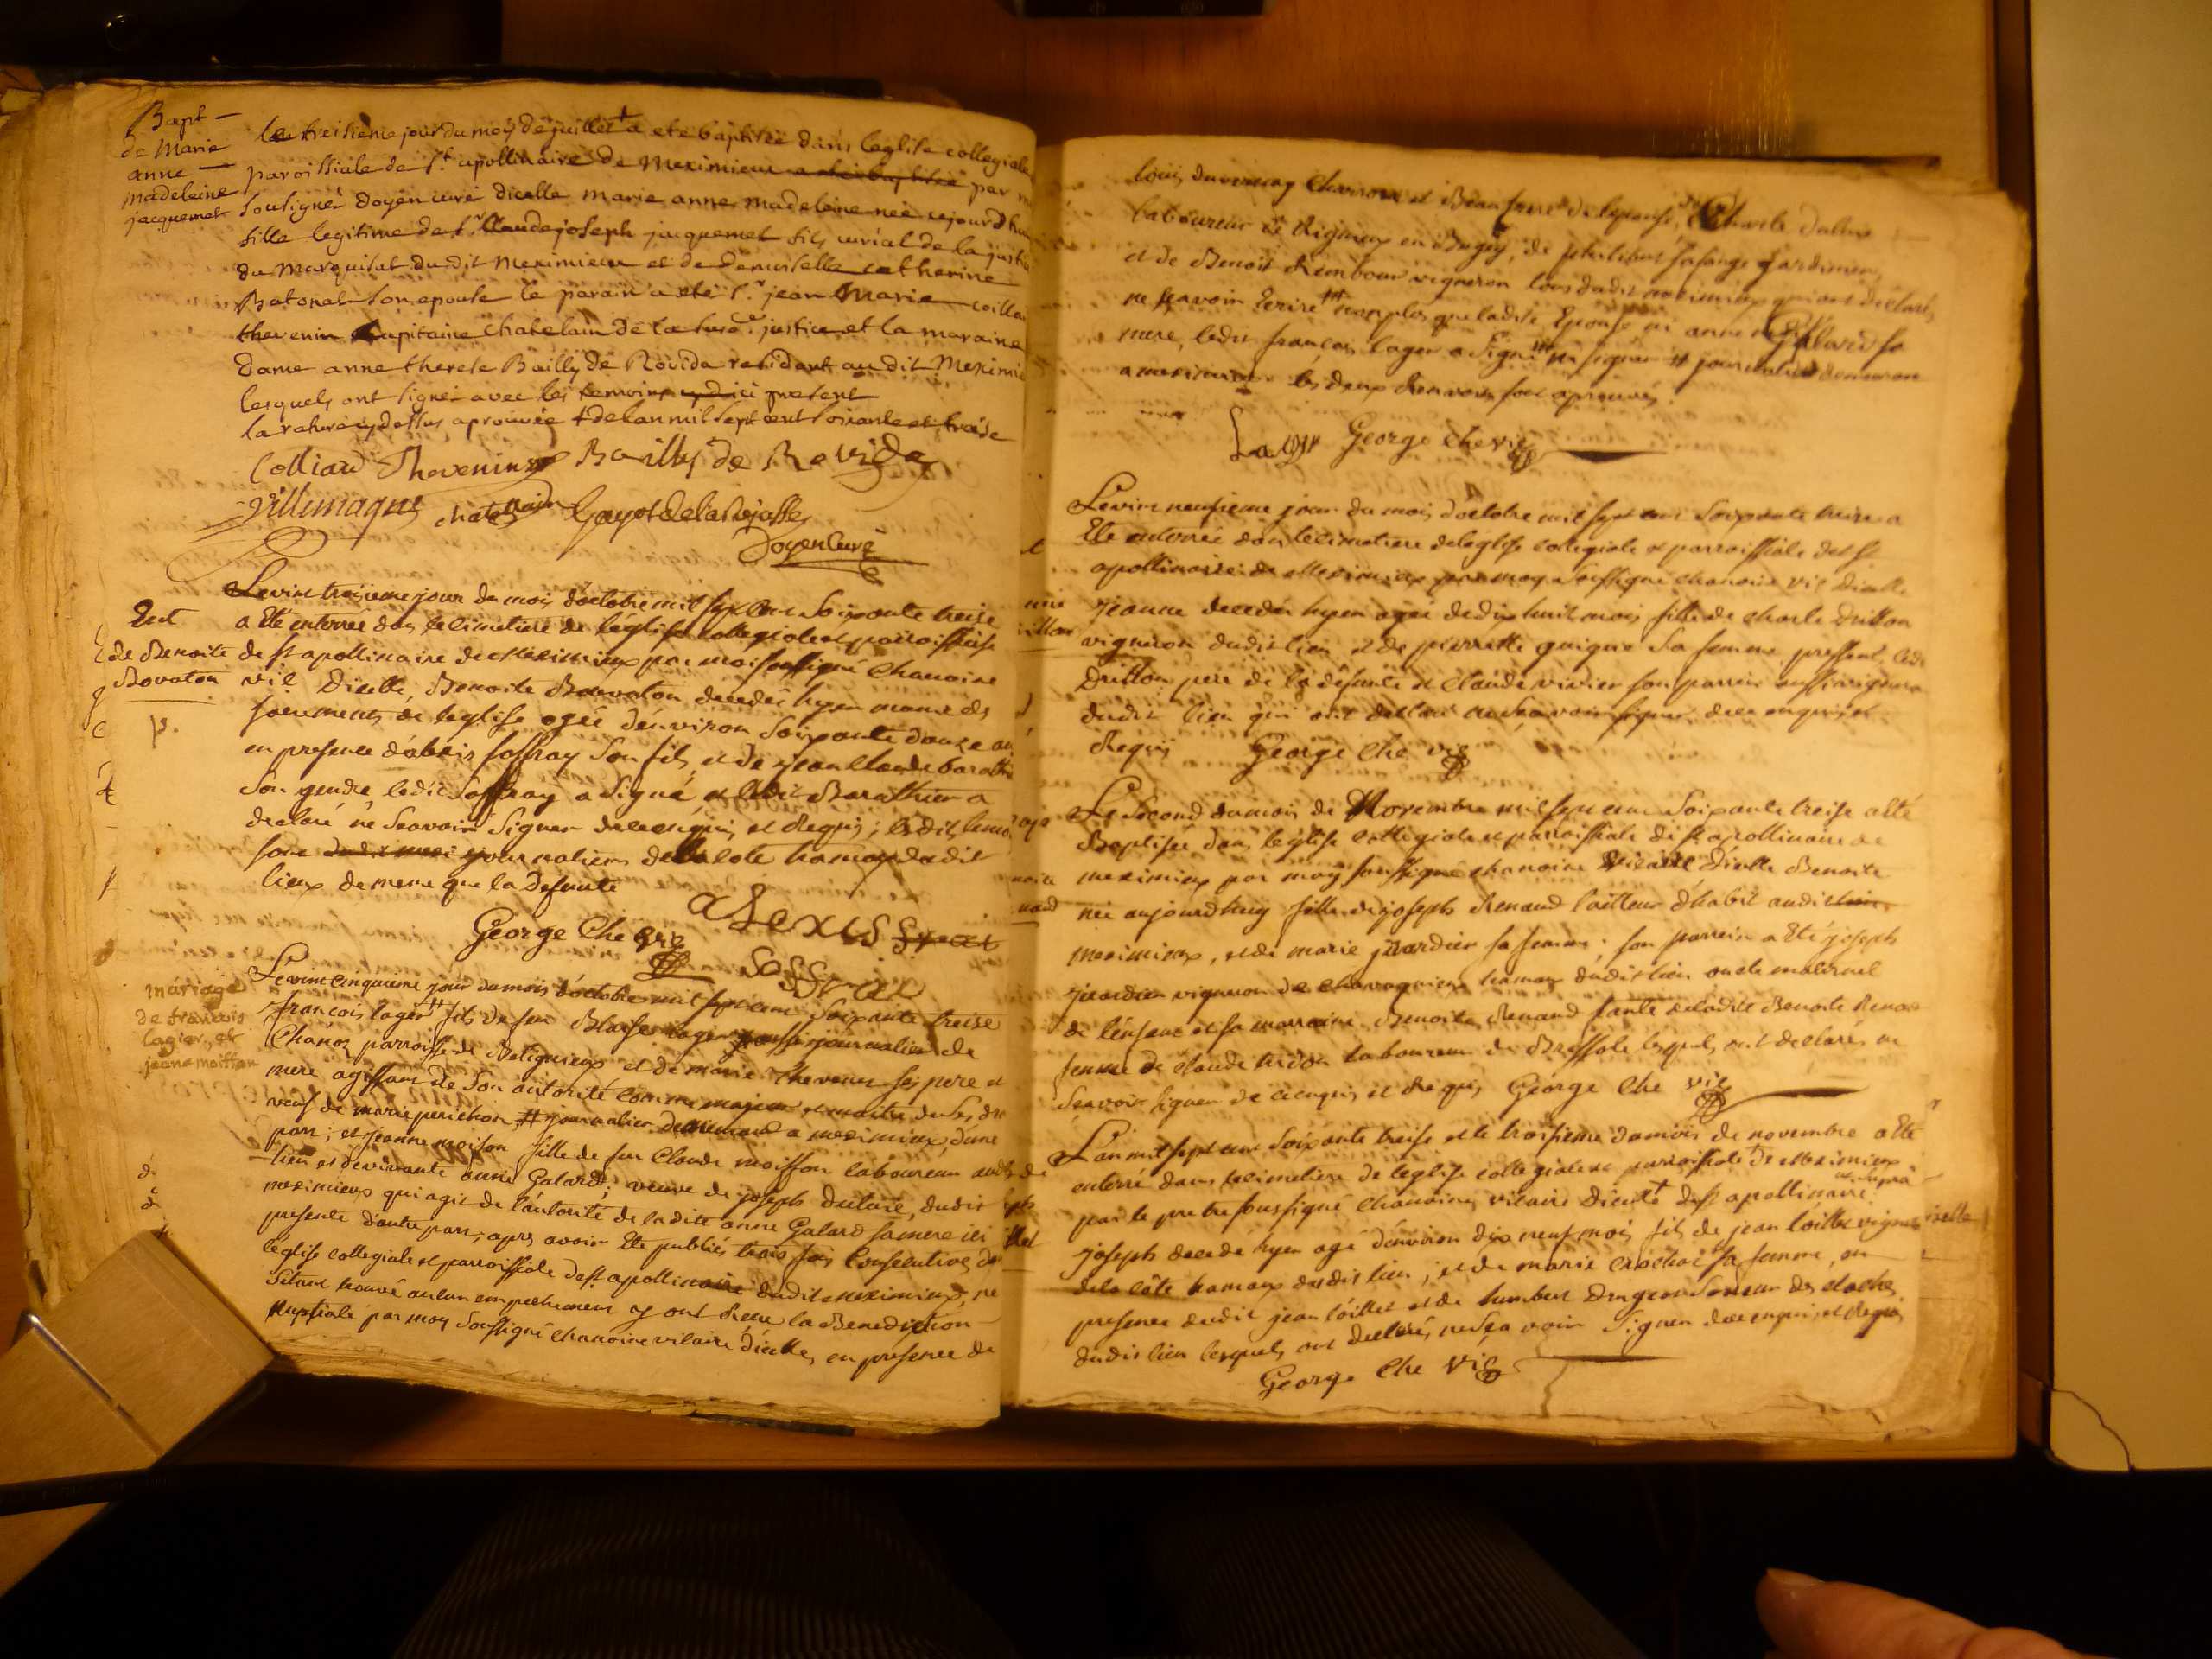 Bapt
de Marie
anne
madeleine
jacquemet
le treisieme jour du mois de juillet a ete baptisée dans leglise collegiale
paroissiale de St. apollinaire de Meximieux a été baptisée par
sousigné doyen curé dicelle marie anne madeleine née cejourdhui
fille legitime de Sr. Claude joseph jacquemet fils curial de la justice
du Marquisat dudit Meximieux et de demoiselle catherine
son epouse le parain a été Sr. jean Marie
thevenin Capitaine Chatelain de justice et la maraine
dame anne therese Bailly de Rovida residant audit Meximieux
lesquels ont signé avec les temoins ici present
la rature cydessus aprouvée + de lan mil sept cent soixante et treise
Colliard Thevenin Bailly de Rovida
Villemagne chatelain Gayot de
Doyen Curé
Ent
de Benoite
Bovaton
Le vint troisieme jour du mois doctobre mil sept cent Soixante treise
a Eté enterrée dans le cimetiere de leglise collegiale et parroissiale
de St apollinaire de Meximieux par moi soussigné Chanoine
vic Dicelle, Benoite Bovaton decedée hyer munie des
sacrements de leglise agée denviron Soixante douze ans
en presence dalexis soffray son fils, et de jean Claude barathier
Son gendre ledit Soffray a Signé, et ledit Barathier a
declaré ne Scavoir Signer de ce enquis et Requis; lesdits
sont journaliers de la Cote hamaux dudit
lieux de meme que la defunte
alexis
George Che vic soffrai
mariage
de francois
lager, et
jeanne moisson
Le vint cinquieme jour du mois doctobre mil sept cent Soixante treise
francois lager fils de feu Blaise lager journalier de
Chanoz parroisse de et de marie thevenet ses pere et
mere agissant de Son autorité comme majeur et maitre de ses droits
veuf de marie journalier demeurant a meximieux dune
part; et jeanne moisson fille de feu Claude moisson laboureur audit
lieu et de vivante anne Galard, veuve de joseph dudit
meximieux qui agit de l'autorité de ladite anne Galard sa mere ici
presente dautre part, apres avoir Eté publiés trois fois Consecutives dans
léglise collegiale et parroissiale de St apollinaire dudit meximieux, ne
setant trouvé aucun empechement y ont Recu la Benediction
Nuptiale par moy Soussigné Chanoine vicaire dicelle, en présence de
louis Charron et Beaufrere de lepouse, de Charle
laboureur de Rigneux en Bugey, de philibert jardinier
et de Benoit Rimbour vigneron tous dudit meximieux qui ont declaré
ne scavoir Ecrire non plus que ladite Epouse ni anne Galard sa
mere, ledit francois lager a Signé journalier demeurant
a meximieux les deux Renvois sont aprouvés
Lager George Che vic
Le vint neufieme jour du mois doctobre mil sept cent Soixante treise a
Eté enterrée dans le cimetiere de leglise collegiale et parroissiale de St
apollinaire de Meximieux par moy Soussigné chanoine vic dicelle
jeanne decedée hyer agée de dix huit mois fille de charle Drillon
vigneron dudit lieu et de pierrette guigue Sa femme, present ledit
Drillon pere de la defunte et Claude vivier son parrein aussi vigneron
dudit lieu qui ont declaré ne Scavoir Signer de ce enquis et
Requis George Che vic
Le Second du mois de Novembre mil sept cent Soixante treise a eté
Baptisée dans léglise collegiale et parroissiale de St apollinaire de
meximieux par moy soussigné chanoine vicaire Dicelle Benoite
née aujourdhuy fille de joseph Renaud tailleur dhabit audit
meximieux, et de marie jeardier sa femme; son parrein a Eté joseph
jeardier vigneron de Chavagnieux hamaux dudit lieu oncle maternel
de l'enfant et sa marraine Benoite Renaud tante de ladite Benoite Renaud
femme de claude laboureur de Bressole lesquels ont declarés ne
Scavoir Signer de ce enquis et Requis George Che vic
L'an mil sept cent Soixante treise et le troisieme du mois de novembre a Eté
enterré dans le cimetiere de léglise collegiale et parroissiale de Meximieux
par le pretre soussigné Chanoine, vicaire Dicelle de St apollinaire
joseph decedé hyer agé denviron dix neuf mois fils de jean loillet vigneron
de la côte hamaux dudit lieu, et de marie crochat sa femme, en
presence dudit jean loillet et de humbert Sonneur des cloches
dudit lieu lesquels ont declaré ne Scavoir Signer de ce enquis et Requis
George Che vic